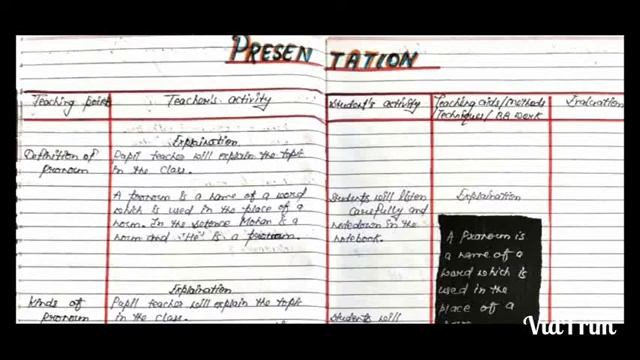 PRESENTATION
Teaching point
Teacher's activity
Student's activity
Teaching aids/Methods
Techniques/BB work
Evaluation
Explaination
Definition of
pronoun
Pupil teacher will explain the topic
in the class.
A pronoun is a name of a word
which is used in the place of a
noun. In the sentence Mohan is a
noun and "He" is a pronoun.
Students will listen
carefully and
notedown in the
notebook.
Explaination
A Pronoun is
a name of a
word which is
used in the
place of a
Explaination
Kinds of
pronoun
Pupil teacher will explain the topic
in the class.
Students will
VivaTrim